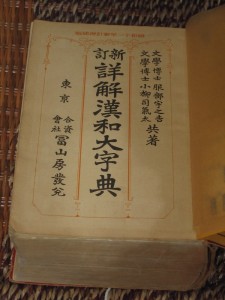 文學博士 服部宇之吉
文學博士 小柳司氣太 共著
新訂 詳解漢和大字典
東京
合資會社 冨山房發兌